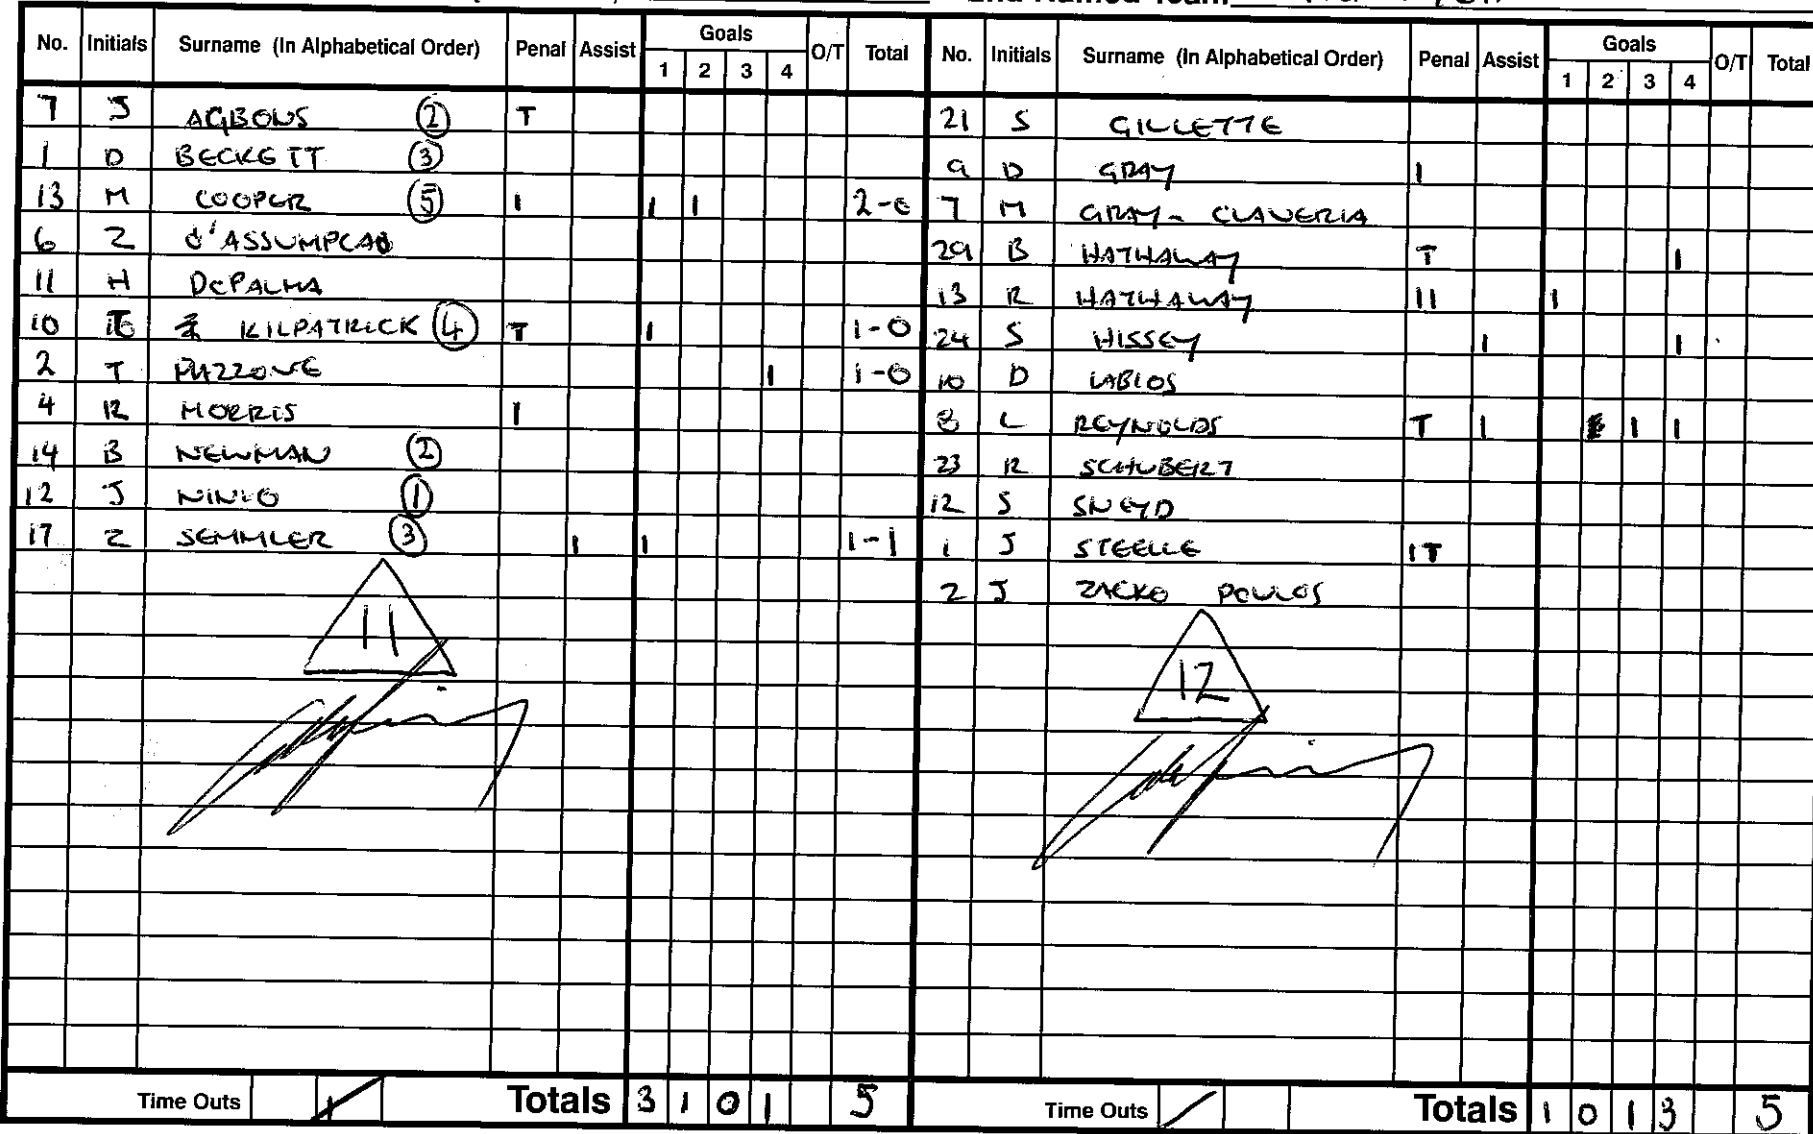 2nd Named Team
No. Initials Surname (In Alphabetical Order) Penal Assist Goals 1 2 3 4 O/T Total
7 J AGBOUS ② T
1 D BECKETT ③
13 M COOPER ⑤ 1 1 1 2-0
6 Z d'ASSUMPCAO
11 H DePALMA
10 T KILPATRICK ④ T 1 1-0
2 T MAZZONE 1 1-0
4 R MORRIS 1
14 B NEWMAN ②
12 J NINIO ①
17 Z SEMMLER ③ 1 1 1-1
11
Time Outs Totals 3 1 0 1 5
No. Initials Surname (In Alphabetical Order) Penal Assist Goals 1 2 3 4 O/T Total
21 S GILLETTE
9 D GRAY 1
7 M GRAY-CLAVERIA
29 B HATHAWAY T 1
13 R HATHAWAY 11 1
24 S HISSEY 1 1
10 D LABIOS
8 L REYNOLDS T 1 1 1
23 R SCHUBERT
12 S SNEYD
1 J STEELLE 1T
2 J ZACKO POULOS
12
Time Outs Totals 1 0 1 3 5